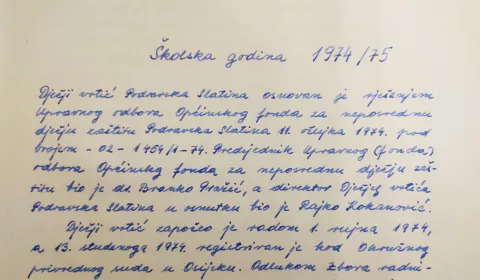 Školska godina 1974/75
Dječji vrtić Podravska Slatina osnovan je rješenjem
Upravnog odbora Općinskog fonda za neposrednu
dječju zaštitu Podravska Slatina 11. ožujka 1974. pod
brojem - 02 - 1454/1-74. Predsjednik Upravnog (fonda)
odbora Općinskog fonda za neposrednu dječju zaš-
titu bio je dr. Branko, a direktor Dječjeg vrtića
Podravska Slatina u osnutku bio je Rajko Kokanović.
Dječji vrtić započeo je radom 1. rujna 1974,
a 13. studenoga 1974. registriran je kod Okružnog
privrednog suda u Osijeku. Odlukom Zbora radni-